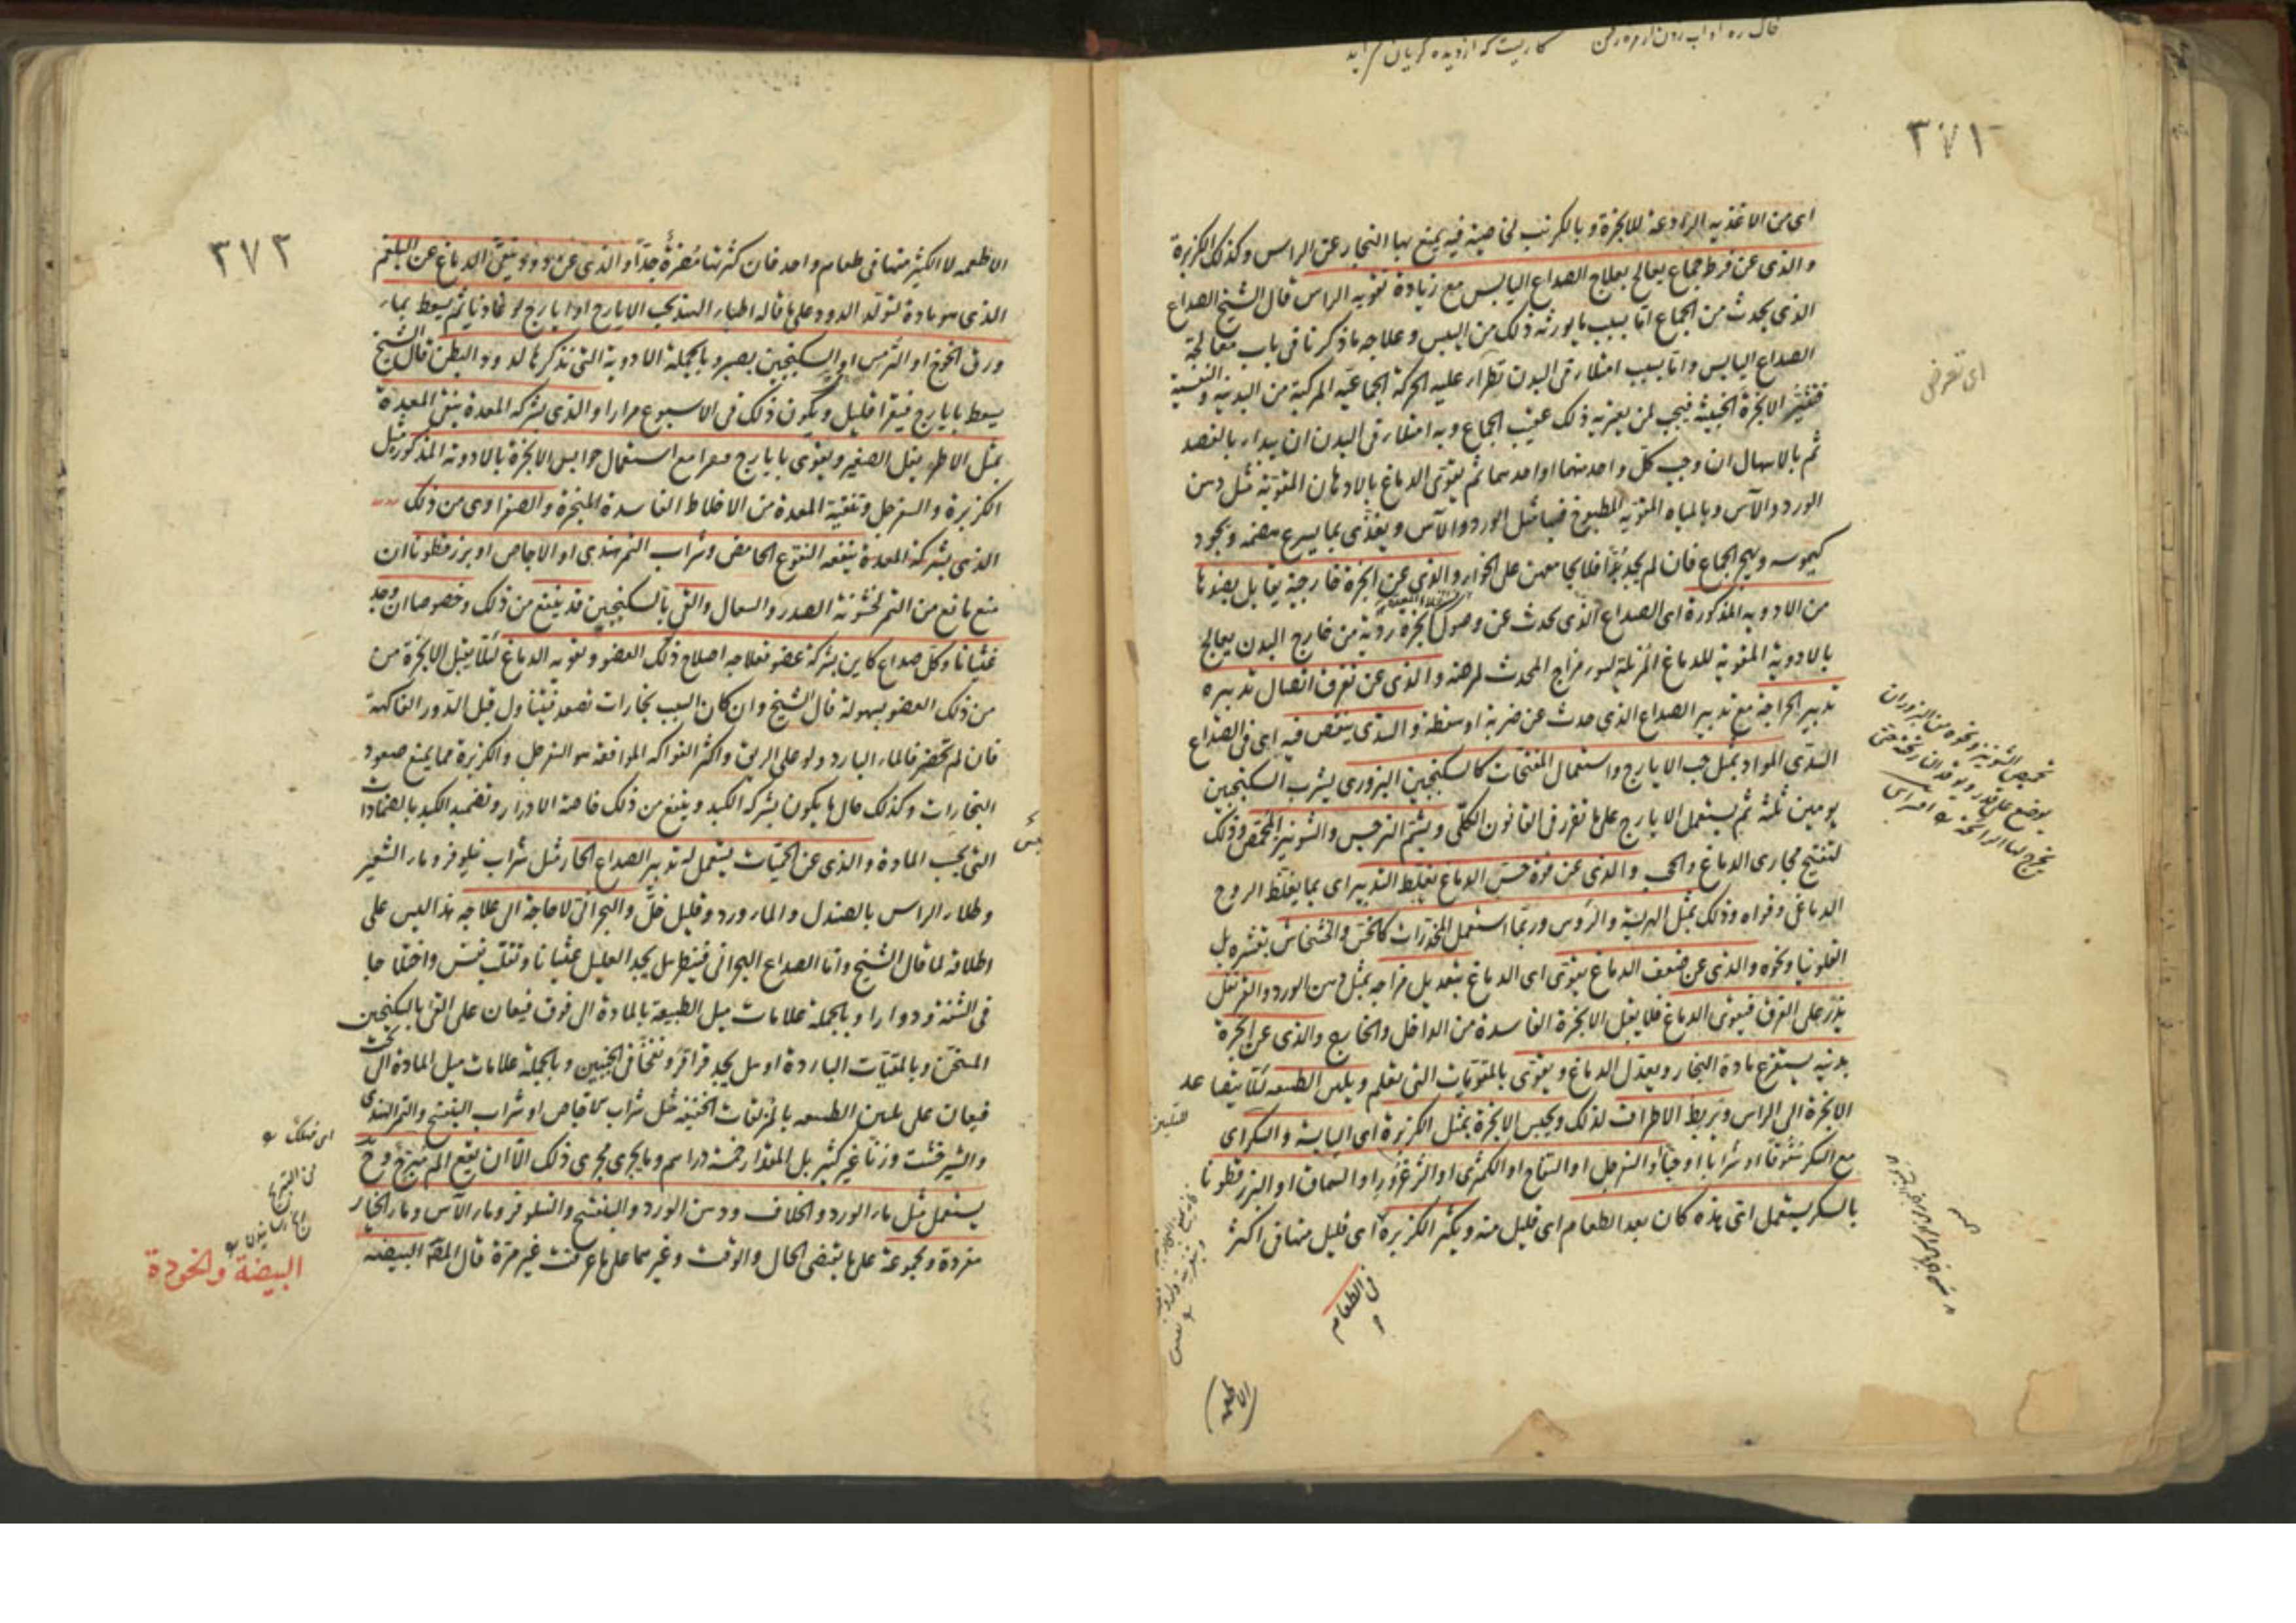 ٣٧١
اى من الاغذيه الرادعة للابخرة و بالكرنب لخاصية فيه يمنع بها البخار عن الراس وكذلك الكزبرة
والذى عن فرط جماع يعالج بعلاج الصداع اليابس مع زيادة تقويه الراس قال الشيخ الصداع
الذى يحدث من الجماع اما بسبب ما يورثه ذلك من اليبس و علاجه ما ذكرنا فى باب معالجة
الصداع اليابس و اما بسبب امتلاء فى البدن تطرأ عليه الحركة الجماعيه المركبة من البدنيه و النفسية
فتثير الابخرة الخبيثه فيجب لمن يعتريه ذلك عقيب الجماع و به امتلاء فى البدن ان يبدا بالفصد
ثم بالاسهال ان وجب كل واحد منهما او احدهما ثم يقوى الدماغ بالادهان المقوية مثل دهن
الورد والآس و بالمياه المقويه المطبوخ فيها مثل الورد والآس و يغذى بما يسرع هضمه و يجود
كيموسه و يهجر الجماع فان لم يجد بدا فلا يجامعهن على الخواء والذى عن ابخرة خارجية يقابل بضدها
من الادويه المذكورة اى الصداع الذى يحدث عن وصول ابخرة ردية من خارج البدن يعالج
بالادوية المقوية للدماغ المزيلة لسوء مزاج المحدث لمرضه والذى عن تفرق اتصال تدبيره
تدبير الجراحة مع تدبير الصداع الذى حدث عن ضربة او سقطة والسددى ينقص فيه اى فى الصداع
السددى المواد بمثل حب الايارج و استعمال المفتحات كالسكنجبين البزورى يشرب السكنجبين
يومين ثلثة ثم يستعمل الايارج على ما تقرر فى القانون الكلى ويشم النرجس والشونيز المحمص وذلك
لتفتيح مجارى الدماغ والحجب والذى عن قوة حس الدماغ بغلظ التدبير اى بما يغلظ الروح
الدماغى و قواه و ذلك بمثل الهريسة والرؤس و ربما استعمل المخدرات كالخس والخشخاش بقشره بل
الفلونيا و نحوه والذى عن ضعف الدماغ يقوى اى الدماغ بتعديل مزاجه بمثل دهن الورد والقرنفل
يذر على الفرق فيقوى الدماغ فلا يقبل الابخرة الفاسدة من الداخل والخارج والذى عن ابخرة
بدنيه يستفرغ مادة البخار و يعدل الدماغ و يقوى بالمقويات التى تعلم و يلين الطبيعه لئلا يتصاعد
الابخرة الى الراس و يربط الاطراف لذلك و يحبس الابخرة بمثل الكزبرة اى اليابسة والسكر اى
مع السكر سفوفا او شرابا او حبا او السفرجل او التفاح او الكمثرى او الزعرور او السماق او البزرقطونا
بالسكر يستعمل اى هذه كان بعد الطعام اى قليل منه و يكثر الكزبرة اى قليل منها فى اكثر
فى الطعام
الاطعمه
٣٧٢
الاطعمه لا الكثير منها فى طعام واحد فان كثرتها مضرة جدا و الذى عن دود ينقى الدماغ عن البلغم
الذى هو مادة لتولد الدود على ما قاله اطباء الهند بحب الايارج او ايارج لوغاذيا ثم يسعط بماء
ورق الخوخ او الترمس او السكنجبين بصبر و بالجملة الادوية التى نذكرها لدود البطن قال الشيخ
يسعط بايارج فيقرا قليل و يكون ذلك فى الاسبوع مرارا والذى بشركه المعدة ينقى المعدة
بمثل الاطريفل الصغير و يقوى بايارج فيقرا مع استعمال حوابس الابخرة بالادوية المذكورة مثل
الكزبرة والسفرجل و تنقية المعدة من الاخلاط الفاسدة المبخرة والصفراوى من ذلك
الذى بشركة المعدة ينفعه النقوع الحامض وشراب التمر هندى او الاجاص او بزرقطونا ان
منع مانع من التمر لخشونة الصدر والسعال والقى بالسكنجبين قد ينفع من ذلك و خصوصا ان وجد
غثيانا و كل صداع كاين بشركة عضو فعلاجه اصلاح ذلك العضو و تقويه الدماغ لئلا يقبل الابخرة من
من ذلك العضو بسهولة قال الشيخ و ان كان السبب بخارات تصعد فيتناول قبل الدور الفاكهة
فان لم تحضر فالماء البارد ولو على الريق و اكثر الفواكه الموافقة هو السفرجل والكزبرة مما يمنع صعود
البخارات و كذلك حال ما يكون بشركه الكبد و ينفع من ذلك خاصة الادرار و تضميد الكبد بالضمادات
التى بحسب المادة والذى عن الحميات يستعمل له تدبير الصداع الحار مثل شراب نيلوفر و ماء الشعير
و طلاء الراس بالصندل والماء ورد و قليل خل والبحرانى لا حاجة الى علاجه هذا ليس على
اطلاقه لما قال الشيخ و اما الصداع البحرانى فينظر هل يجد العليل غثيانا و تقلب نفس و اختلاجا
فى الشفة و دوارا و بالجملة علامات ميل الطبيعة بالمادة الى فوق فيعان على القى بالسكنجبين
المسخن و بالمقيآت الباردة او هل يجد قراقر و نفخا فى الجنبين و بالجملة علامات ميل المادة الى تحت
فيعان على تليين الطبيعه بالمزلقات الخفيفه مثل شراب الاجاص او شراب البنفسج والتمر الهندى
والشيرخشت وزنا غير كثير بل المقدار خمسة دراهم و ما يجرى مجرى ذلك الا ان يقع الم مبرح فح
يستعمل مثل ماء الورد والخلاف و دهن الورد والبنفسج والنيلوفر و ماء الآس و ماء الخيار
مفردة و مجموعة على ما يقتضى الحال والوقت و غيرهما على ما عرفت غير مرة قال المص البيضة
البيضة والخودة